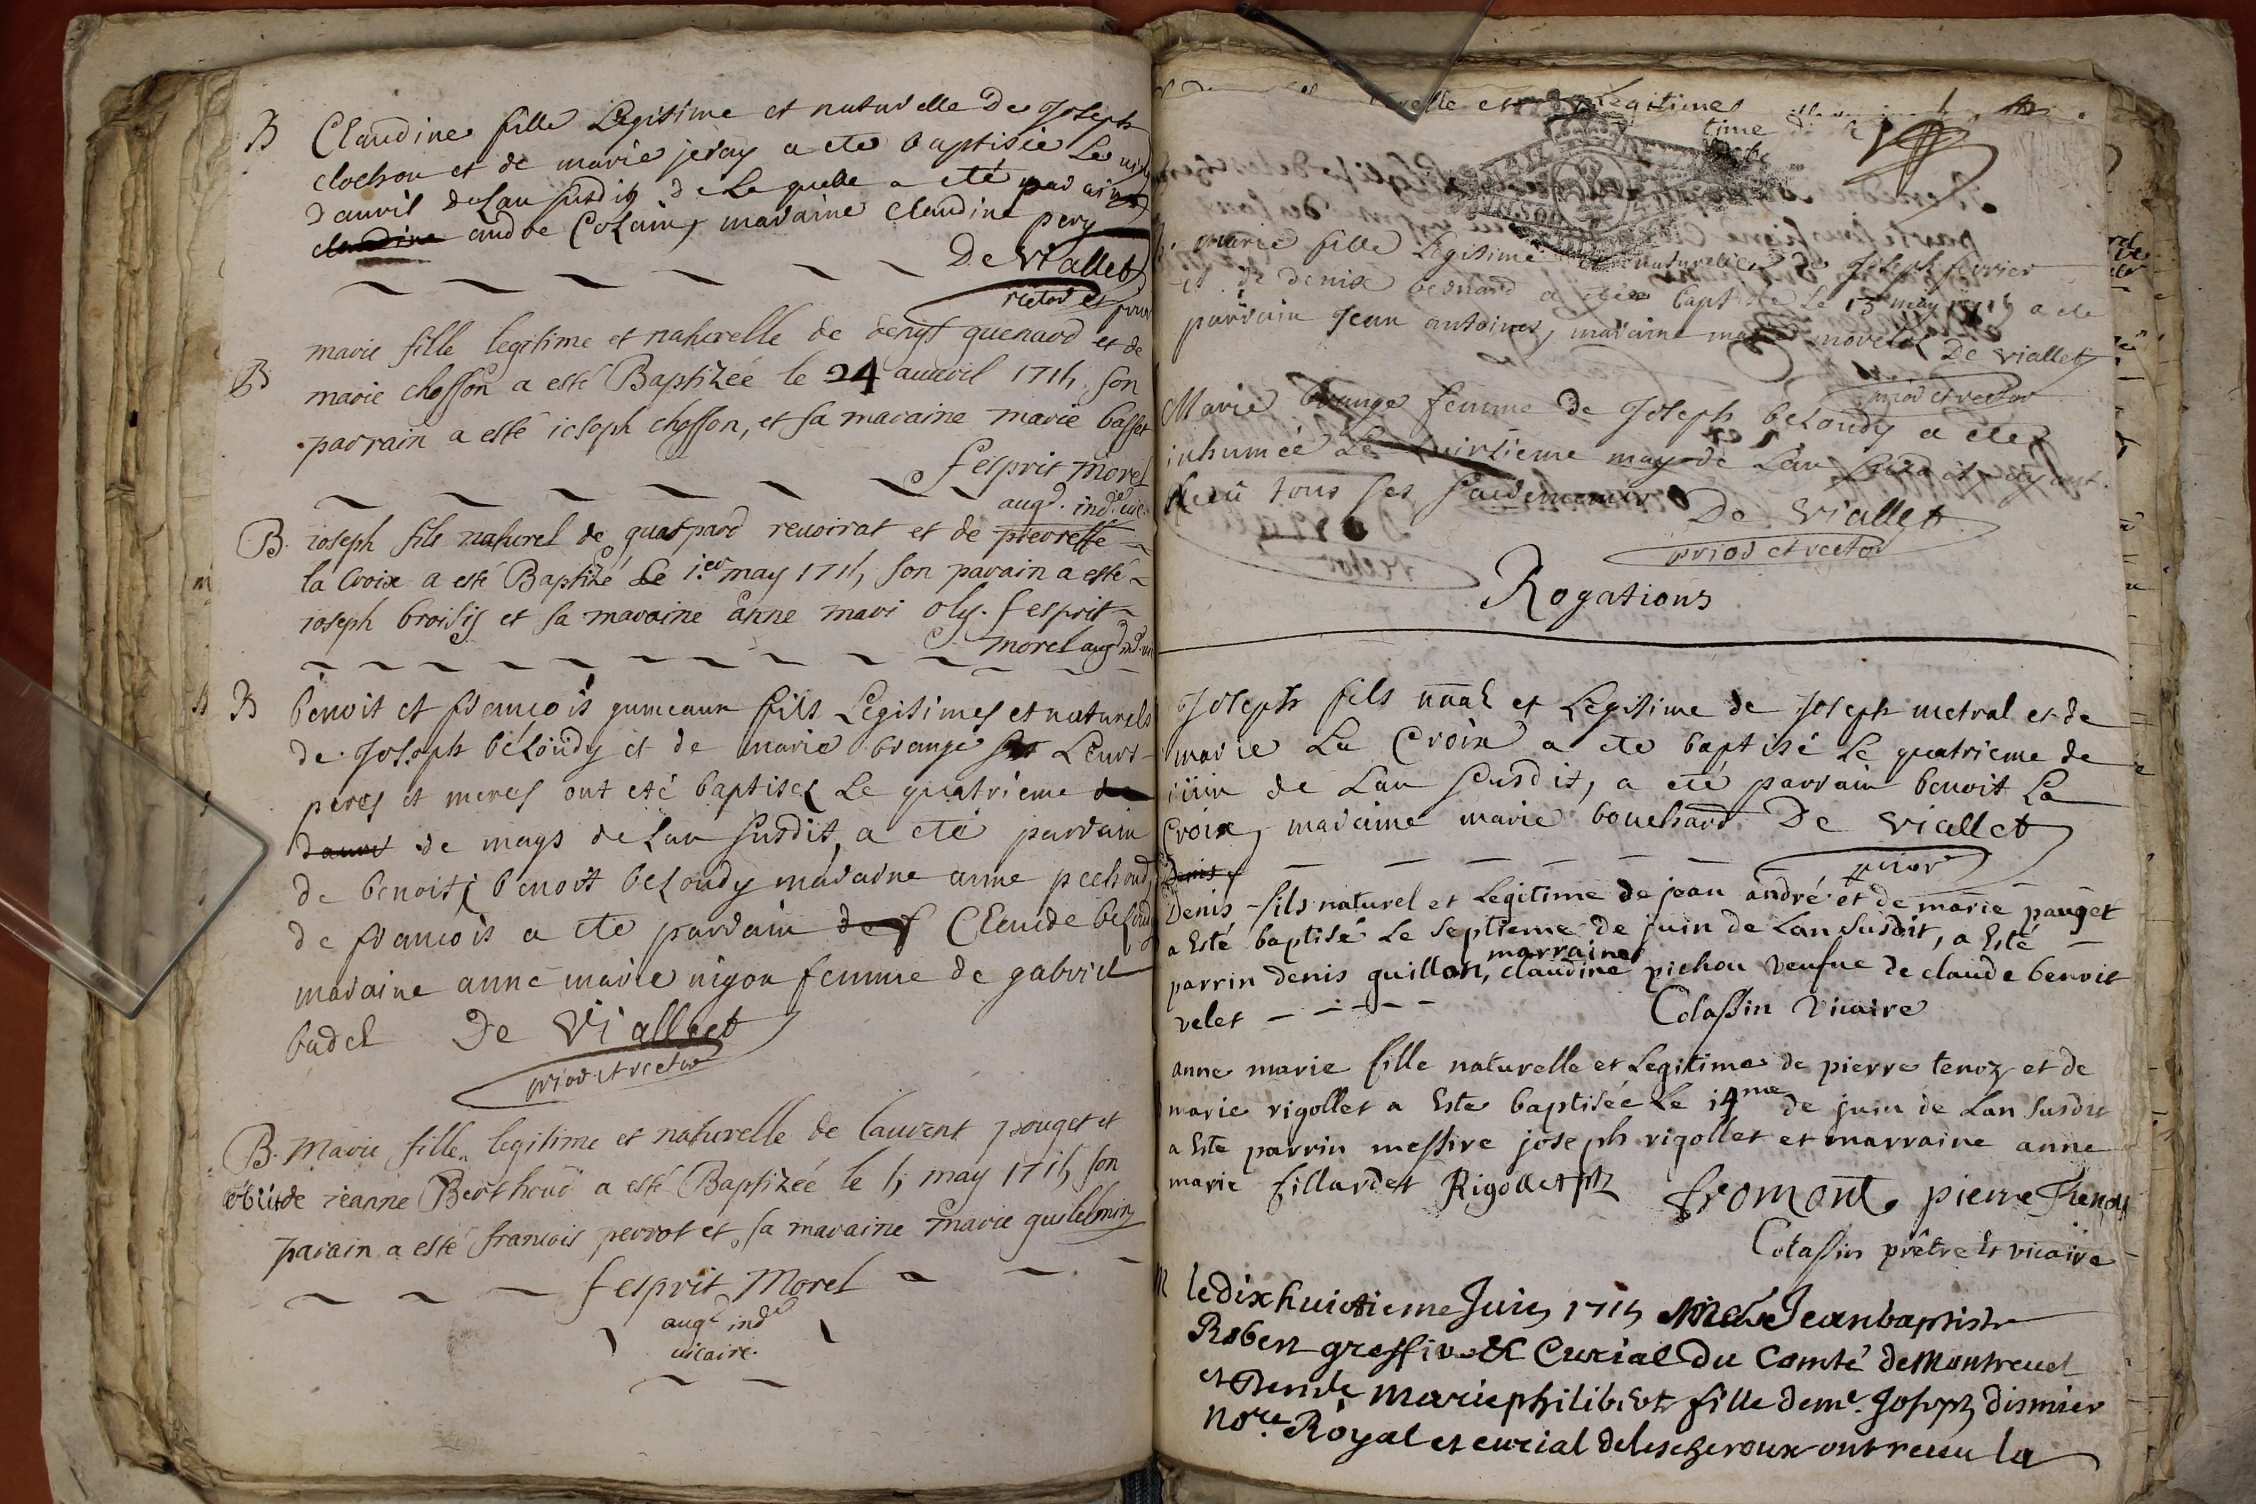 B Claudine fille Legitime et naturelle De Joseph
clochon et de marie jeray a ete baptisie Le
d'auvril de Lan susdit de Le quelle a eté parain
claudine andre Colain, maraine claudine pery
De Viallet
rector et prior
marie fille legitime et naturelle de denys quenard et de
B marie chosson a esté Baptizée le 24 auvril 1715 son
parrain a esté ioseph chosson, et sa maraine marie basset
f esprit morel
aug.d ind.e vic.
B. ioseph fils naturel de quaspard reuoirat et de pierrette
la Croix a esté Baptizé Le 1.er may 1715, son parain a esté
ioseph broisis et sa maraine anne mari oly. f esprit
morel aug.d ind.e
B benoit et francois gumeaux fils Legitimes et naturels
de Joseph beloudy et de marie brange Leurs
peres et meres ont eté baptises Le quatrieme de
d'auvr de mays de Lan susdit, a eté parrain
de benoit benoit beloudy maraine anne pechoud,
de francois a ete parrain de f Claude beloudy
maraine anne marie nigon femme de gabriel
badel De Viallet
prior et rector
B. Marie fille legitime et naturelle de laurent pouget et
obiit de ieanne Berthoud a esté Baptizée le 5 may 1715 son
parain a esté francois perrot et sa maraine marie guillelmin
f esprit Morel
aug.d ind.e
vicaire.
relle et Legitime
time
marie fille Legitime et naturelle de Joseph ferrier
et de denise bernard a etée baptisée Le 13 may 1715 a ete
parrain Jean antoine, maraine marie morel De viallet
prior et rector
Marie brange femme de Joseph beloudy a ete
inhumée Le huitieme may de Lan susdit ayant
Receu tous ses sacdemens De Viallet
prior et rector
Rogations
Joseph fils nnal et Legitime de Joseph metral et de
marie La Croix a ete baptisé Le quatrieme de
iuin de Lan susdit, a eté parrain benoit La
Croix, maraine marie bouchard De viallet
prior
Denis
Denis fils naturel et Legitime de jean andré et de marie pauget
a Esté baptisé Le septieme de juin de Lan susdit, a Esté
marraine
parrin denis guillon, claudine pichon veufue de claude benoit
velet
Colassin Vicaire
anne marie fille naturelle et Legitime de pierre tenoz et de
marie rigollet a Este baptisée Le 14me de juin de Lan susdit
a Este parrin messire joseph rigollet et marraine anne
marie fillardet Rigollet ptr fromont pierre Thenoz
Colassin prêtre Et vicaire
M le dix huictieme Juin 1715 Jean baptiste
Robert greffier & Curial Du Comté de Montreuel
et Marie philibert fille de me. Joseph dismier
Nore. Royal et curial de lescheroux ont receu la